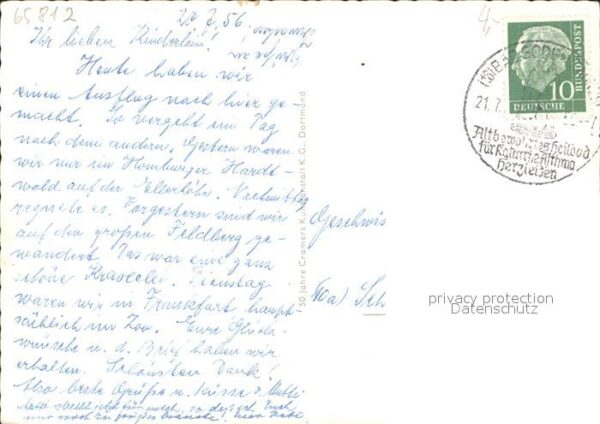 65812
20.7.56.
Ihr lieben Kinderlein!
Heute haben wir
einen Ausflug nach hier ge-
macht. So vergeht ein Tag
nach dem andern. Gestern waren
wir nur im Homburger Hardt-
wald auf der Ellerhöhe. Nachmittag
regnete es. Vorgestern sind wir
auf den großen Feldberg ge-
wandert. Das war eine ganz
schöne Kraxelei. Dienstag
waren wir in Frankfurt haupt-
sächlich im Zoo. Eure Glück-
wünsche u. d. Brief haben wir
erhalten. Schönsten Dank!
Also beste Grüße u. Küsse v. Mutti
150 Jahre Cramers Kunstanstalt K.G., Dortmund
Geschwis
a) Sch
10
DEUTSCHE
BUNDESPOST
21.7.
Altbewährtes Heilbad
für Katarrhe Asthma
Herzleiden
privacy protection
Datenschutz